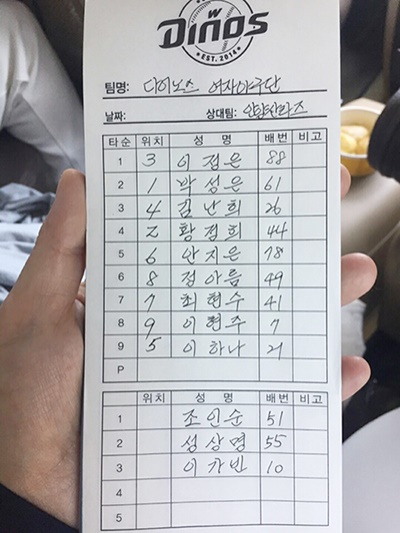 W
DINOS
EST. 2014
팀명: 다이노스 여자야구단
날짜: 상대팀: 안양산타즈
타순 위치 성 명 배번 비고
1 3 이정은 88
2 1 박성은 61
3 4 김난희 26
4 2 황정희 44
5 6 안지은 78
6 8 정아름 49
7 7 최현수 41
8 9 이현주 7
9 5 이하나 21
P
위치 성 명 배번 비고
1 조인순 51
2 성상명 55
3 이가반 10
4
5